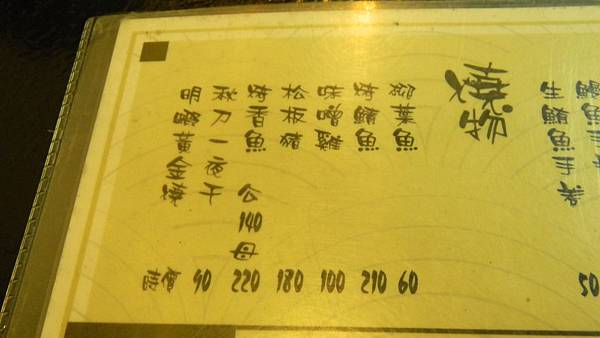 鰻魚手
生鮪魚手卷 50
燒物
柳葉魚 60
烤鯖魚 210
味噌雞 100
松板豬 180
烤香魚 公140 母220
秋刀一夜干 90
明蝦黃金燒 時價